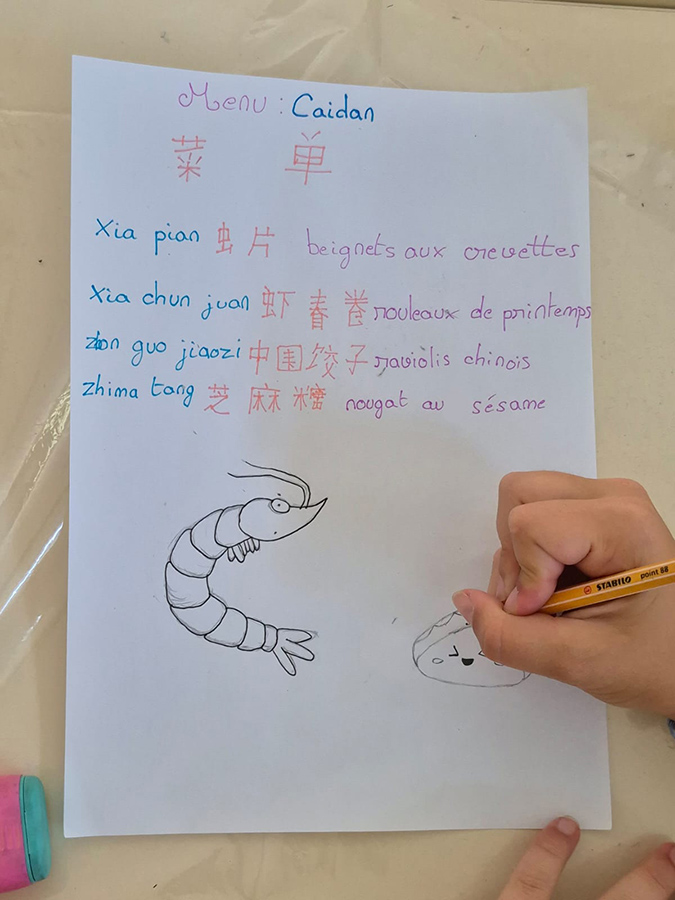 Menu : Caidan
菜 单
Xia pian 虫片 beignets aux crevettes
Xia chun juan 虾春卷 rouleaux de printemps
zhon guo jiaozi 中国饺子 raviolis chinois
zhima tang 芝麻糖 nougat au sésame
STABILO point 88